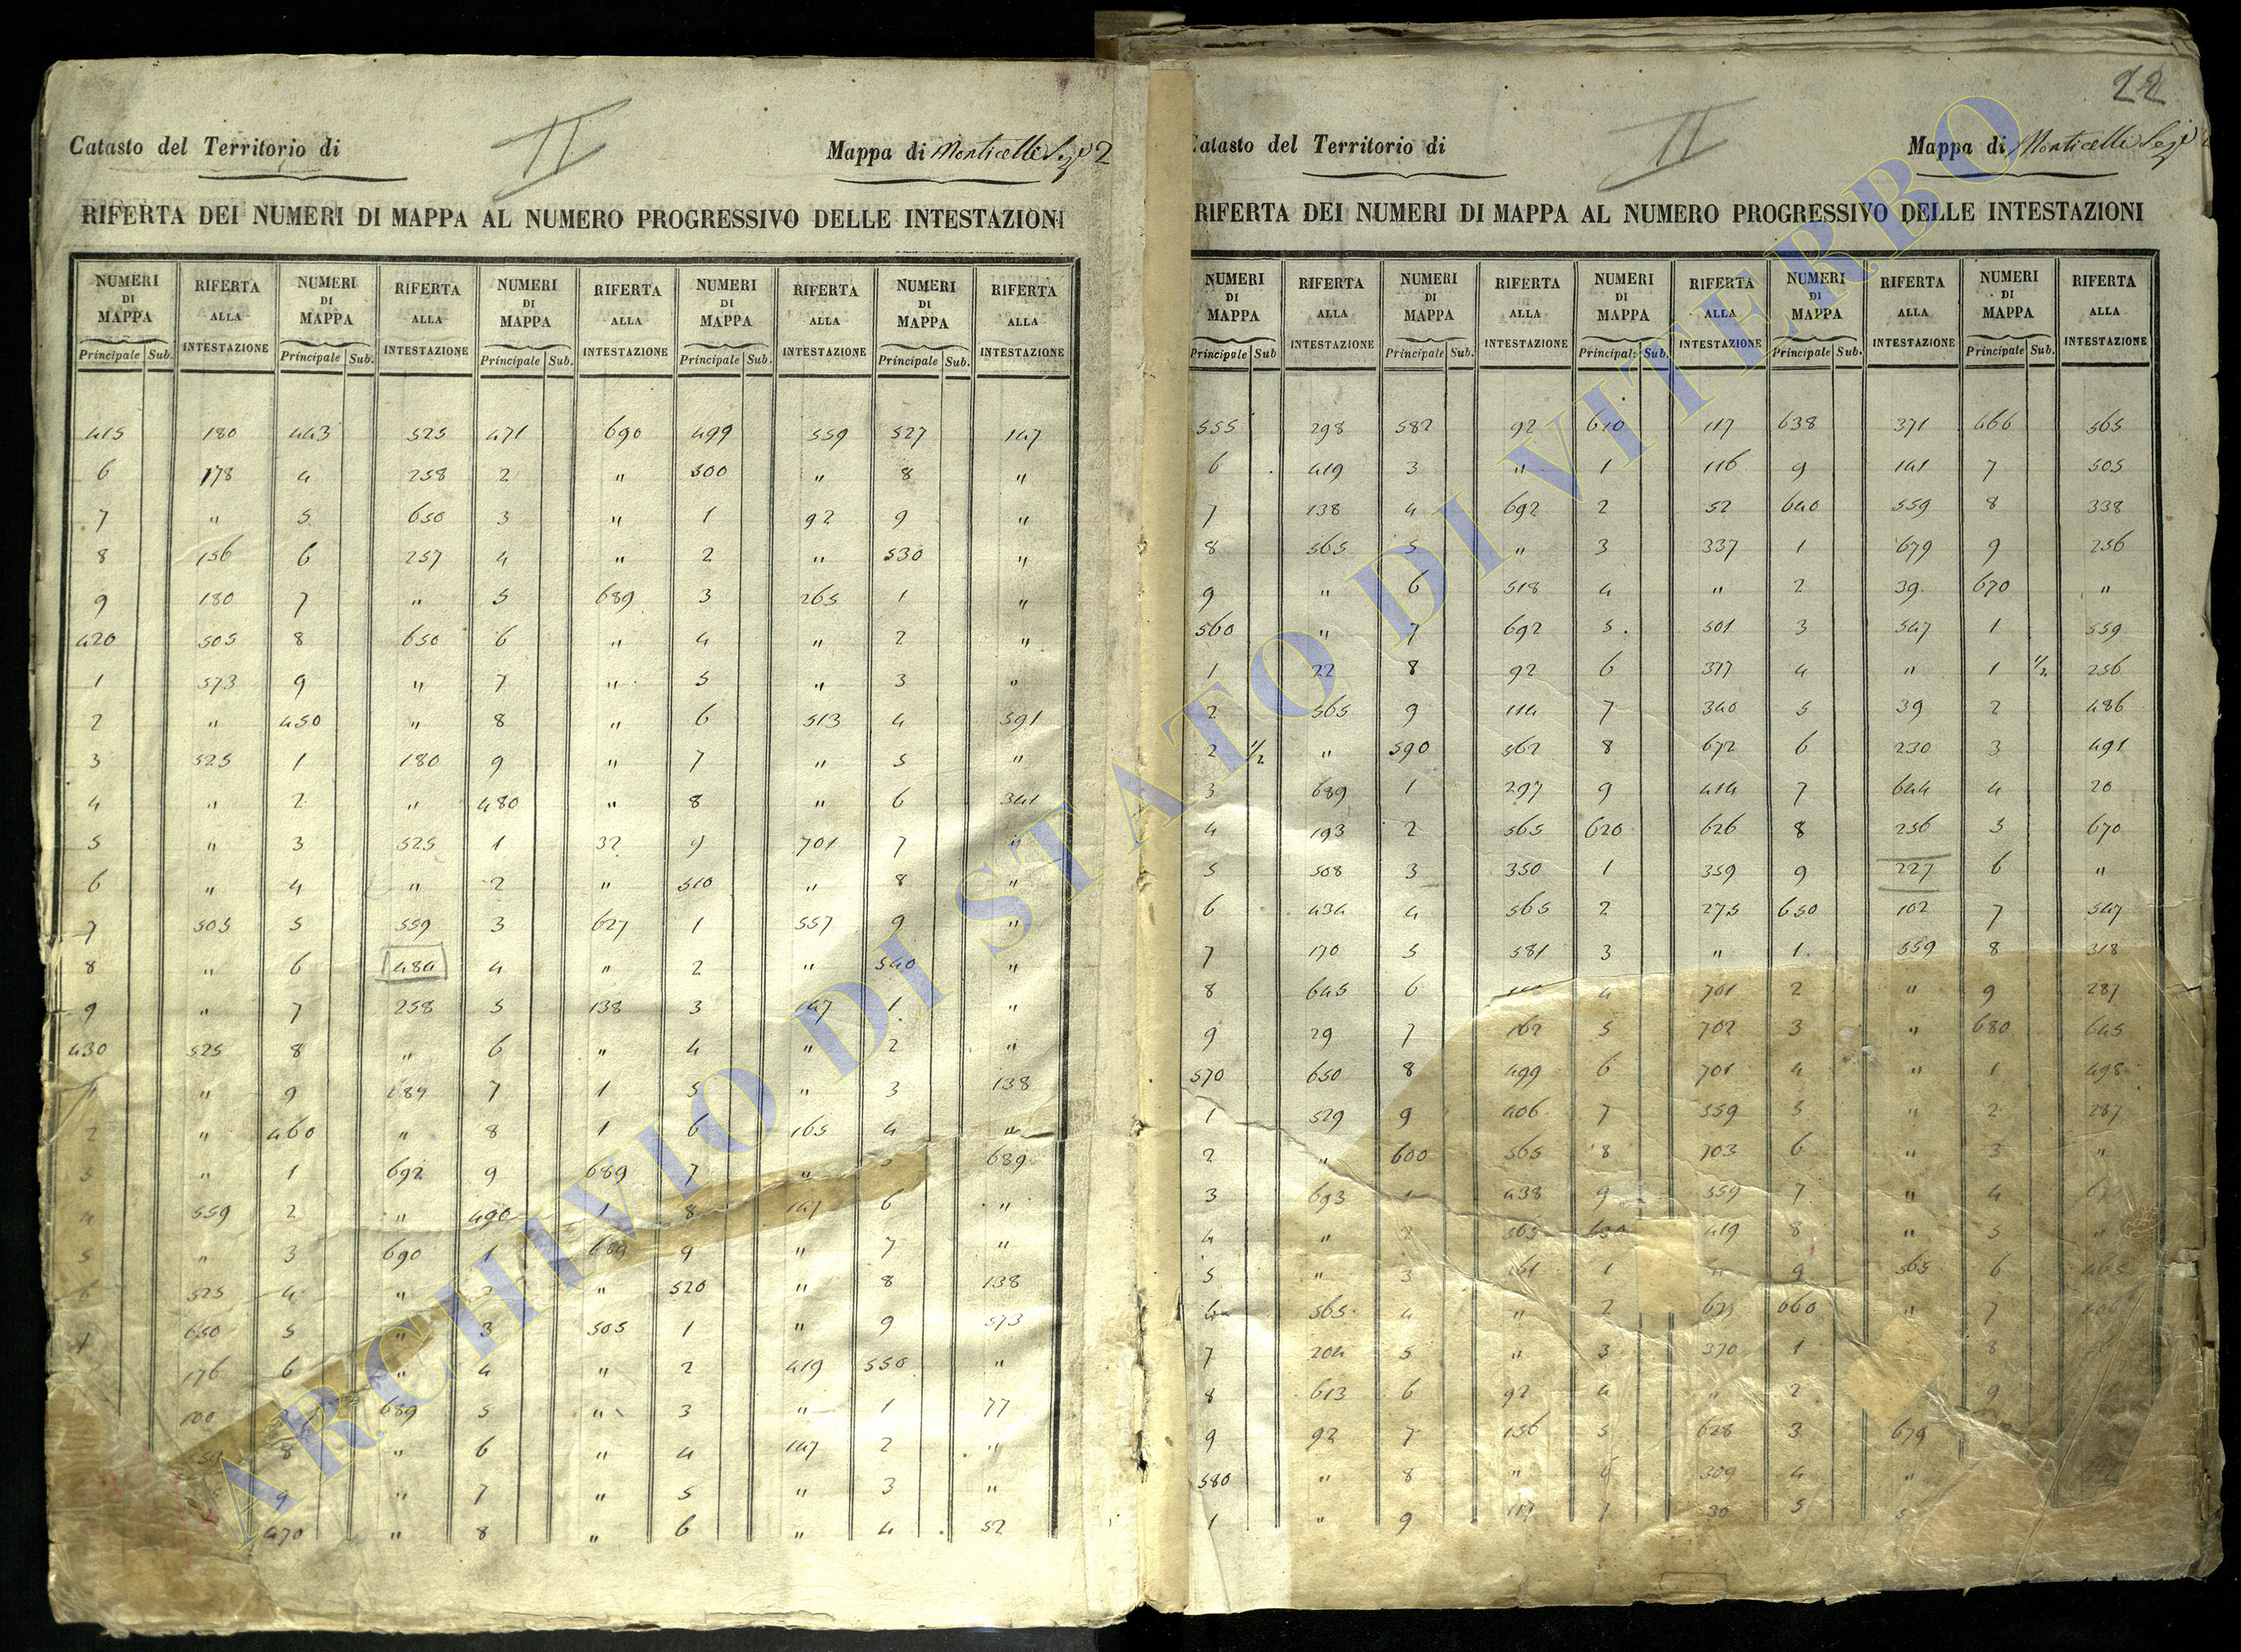 Catasto del Territorio di
II
Mappa di Monticelli Sez.e 2
RIFERTA DEI NUMERI DI MAPPA AL NUMERO PROGRESSIVO DELLE INTESTAZIONI
NUMERI RIFERTA NUMERI RIFERTA NUMERI RIFERTA NUMERI RIFERTA NUMERI RIFERTA
DI ALLA DI ALLA DI ALLA DI ALLA DI ALLA
MAPPA INTESTAZIONE MAPPA INTESTAZIONE MAPPA INTESTAZIONE MAPPA INTESTAZIONE MAPPA INTESTAZIONE
Principale Sub. Principale Sub. Principale Sub. Principale Sub. Principale Sub.
415 180 443 525 471 690 499 559 527 147
6 178 4 258 2 " 500 " 8 "
7 " 5 650 3 " 1 92 9 "
8 156 6 257 4 " 2 " 530 "
9 180 7 " 5 689 3 265 1 "
420 505 8 650 6 " 4 " 2 "
1 573 9 " 7 " 5 " 3 "
2 " 450 " 8 " 6 513 4 591
3 525 1 180 9 " 7 " 5 "
4 " 2 " 480 " 8 " 6 341
5 " 3 525 1 32 9 701 7 "
6 " 4 " 2 " 510 " 8 "
7 505 5 559 3 627 1 557 9 "
8 " 6 484 4 " 2 " 540 "
9 " 7 258 5 138 3 147 1 "
430 525 8 " 6 " 4 " 2 "
1 " 9 189 7 1 5 " 3 138
2 " 460 " 8 1 6 165 4 "
3 " 1 692 9 689 7 " 5 689
4 559 2 " 490 1 8 147 6 "
5 " 3 690 1 689 9 " 7 "
6 525 4 " 2 " 520 " 8 138
7 650 5 " 3 505 1 " 9 573
176 6 " 4 " 2 419 550 "
100 7 689 5 " 3 " 1 77
8 " 6 " 4 147 2 "
9 " 7 " 5 " 3 "
470 " 8 " 6 " 4 52
22
Catasto del Territorio di
II
Mappa di Monticelli Sez.e 2
RIFERTA DEI NUMERI DI MAPPA AL NUMERO PROGRESSIVO DELLE INTESTAZIONI
NUMERI RIFERTA NUMERI RIFERTA NUMERI RIFERTA NUMERI RIFERTA NUMERI RIFERTA
DI ALLA DI ALLA DI ALLA DI ALLA DI ALLA
MAPPA INTESTAZIONE MAPPA INTESTAZIONE MAPPA INTESTAZIONE MAPPA INTESTAZIONE MAPPA INTESTAZIONE
Principale Sub Principale Sub. Principale Sub. Principale Sub. Principale Sub.
555 298 582 92 610 117 638 371 466 565
6 419 3 " 1 116 9 141 7 505
7 138 4 692 2 52 640 559 8 338
8 565 5 " 3 337 1 679 9 256
9 " 6 518 4 " 2 39 670 "
560 " 7 692 5 501 3 547 1 559
1 22 8 92 6 377 4 " 1 1/2 256
2 565 9 114 7 340 5 39 2 486
2 1/2 " 590 562 8 672 6 230 3 491
3 689 1 297 9 414 7 644 4 20
4 193 2 565 620 626 8 256 5 670
5 508 3 350 1 359 9 227 6 "
6 434 4 565 2 275 650 102 7 547
7 170 5 581 3 " 1 559 8 318
8 645 6 4 701 2 " 9 287
9 29 7 162 5 702 3 " 680 645
570 650 8 499 6 701 4 " 1 498
1 529 9 406 7 559 5 " 2 287
2 " 600 565 8 703 6 " 3 "
3 693 1 438 9 559 7 " 4
4 " 2 565 630 419 8 " 5 "
5 " 3 161 1 " 9 565 6
6 565 4 " 2 660 " 7
7 204 5 " 3 370 1 8
8 613 6 92 4 " 2 9
9 92 7 156 5 628 3 679
580 " 8 " 6 309 4 "
1 " 9 117 7 30 5
ARCHIVIO DI STATO DI VITERBO